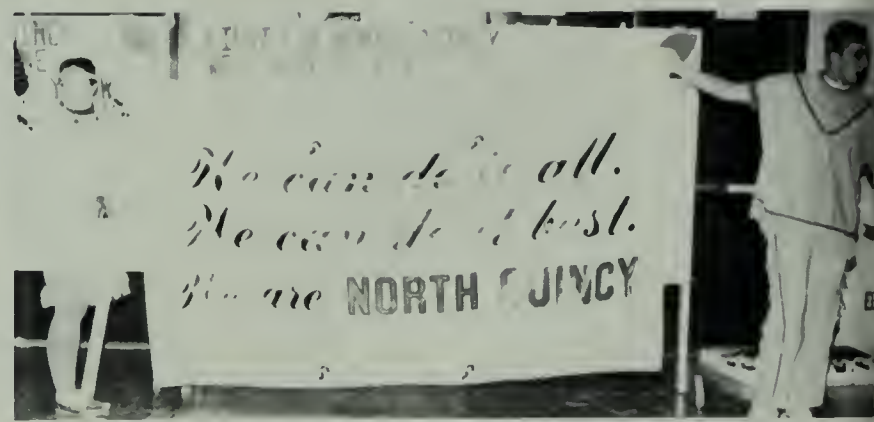 We can do it all.
We can do it best.
We are NORTH QUINCY